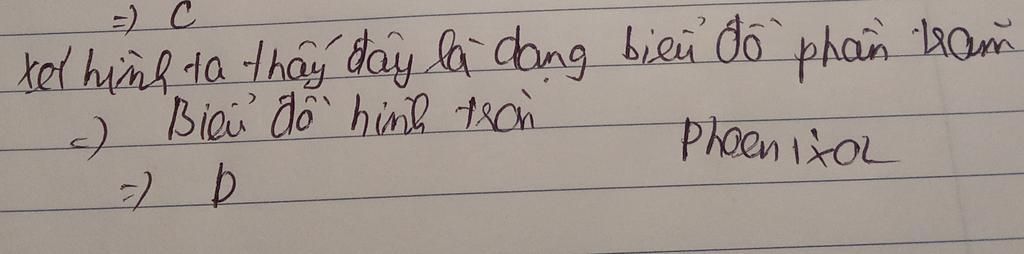 =) C
xét hình ta thấy đây là dạng biểu đồ phần trăm
=) Biểu đồ hình tròn
Phoenixol
=) D